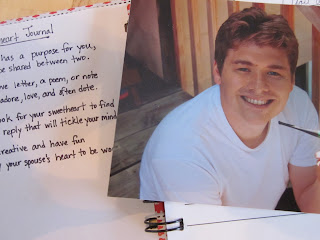 Heart Journal
has a purpose for you,
be shared between two.
love letter, a poem, or note
adore, love, and often dote.
look for your sweetheart to find
reply that will tickle your mind
creative and have fun
your spouse's heart to be wo